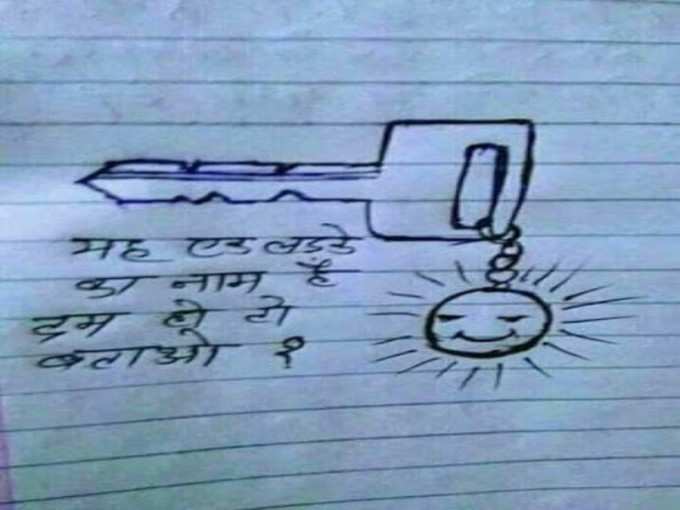 यह एक लड़के
का नाम है
दम हो तो
बताओ ?